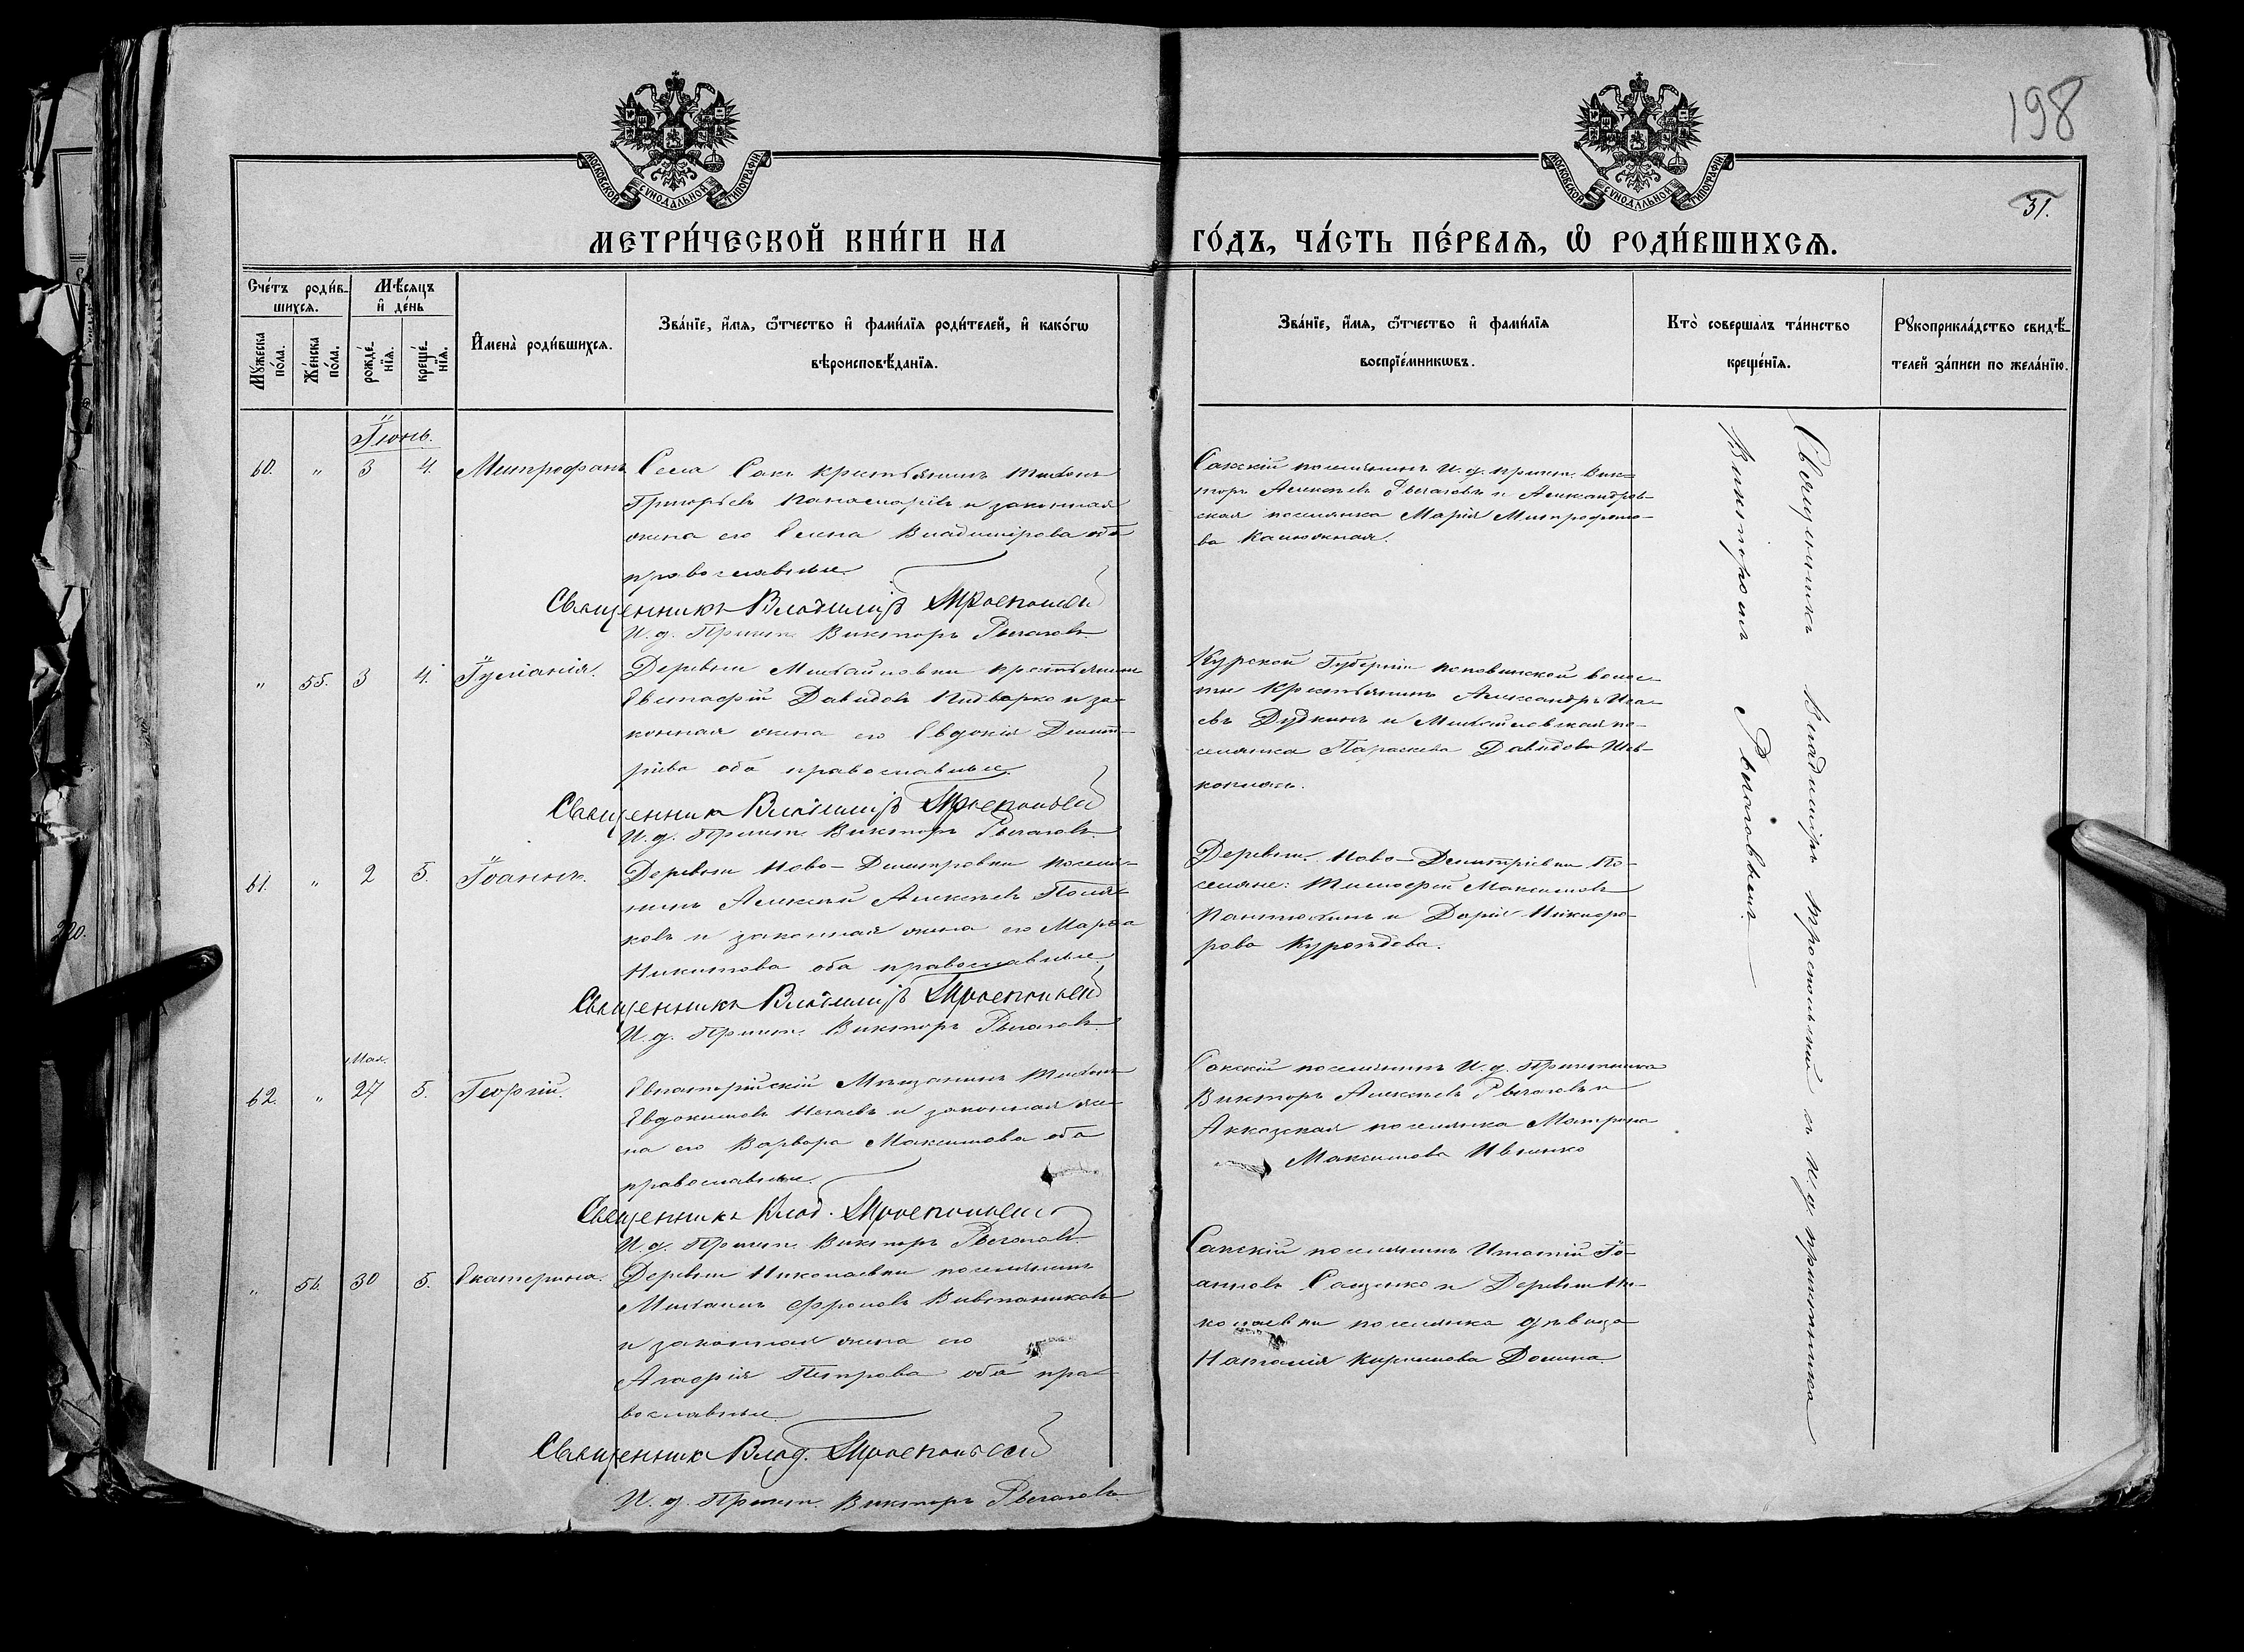 198
31.
МОСКОВСКОЙ СѴНОДАЛЬНОЙ ТИПОГРАФІИ
МОСКОВСКОЙ СѴНОДАЛЬНОЙ ТИПОГРАФІИ
МЕТРИ́ЧЕСКОЙ КНИ́ГИ НА
ГО́ДЪ, ЧА́СТЬ ПЕ́РВАѦ, Ѽ РОДИ́ВШИХСѦ.
Сче́тъ роди́в-
шихсѧ.
Мꙋжеска по́ла.
Же́нска по́ла.
Мѣ́сѧцъ
и҆ де́нь
рожде́-
нїѧ.
креще́-
нїѧ.
И҆мена̀ роди́вшихсѧ.
Зва́нїе, и҆́мѧ, ѻ҆́тчество и҆ фами́лїѧ роди́телей, и҆ како́гѡ
вѣроисповѣ́данїѧ.
Зва́нїе, и҆́мѧ, ѻ҆́тчество и҆ фами́лїѧ
воспрїе́мникѡвъ.
Кто̀ соверша́лъ та́инство
креще́нїѧ.
Рꙋкоприкла́дство свидѣ́-
телей за́писи по жела́нїю.
Іюнь.
60. " 3 4. Митрофанъ
Села Сакъ крестьянинъ Тихонъ
Григорьевъ Панасюрiевъ и законная
жена его Елена Владимірова оба
православные.
Священникъ Владиміръ Троепольскій
И. д. Причет. Викторъ Рыгаловъ
Сакскій поселянинъ И. д. причет. Вик-
торъ Алексѣевъ Рыгаловъ и Александров-
ская поселянка Марія Митрофано-
ва Калюжная.
" 55. 3 4. Іуліанія.
Деревни Михайловки крестьянинъ
Евстафій Давидовъ Пидварко и за-
конная жена его Евдокія Димит-
ріева оба православные.
Священникъ Владиміръ Троепольскій
И. д. Причет. Викторъ Рыгаловъ
Курской Губерніи волос-
ти Крестьянинъ Александръ Иса-
евъ Дудкинъ и Михайловская по-
селянка Параскева Давидова
61. " 2 5. Іоаннъ.
Деревни Ново-Димитровки поселя-
нинъ Алексѣй Алексѣевъ Поля-
ковъ и законная жена его Марѳа
Никитова оба православные.
Священникъ Владиміръ Троепольскій
И. д. Причет. Викторъ Рыгаловъ
Деревни Ново-Димитріевки По-
селяне: Тимофей Максимовъ
Пантюхинъ и Дарія Никифо-
рова Куроѣдова.
Мая.
62. " 27 5. Георгій.
Евпаторійскій Мѣщанинъ Тихонъ
Евдокимовъ Нечаевъ и законная же-
на его Варвара Максимова оба
православные.
Священникъ Влад. Троепольскій
И. д. Причет. Викторъ Рыгаловъ
Сакскій поселянинъ И. д. Причетника
Викторъ Алексѣевъ Рыгаловъ и
Аккозская поселянка Матрона
Максимова Ивченко
" 56. 30 5. Екатерина.
Деревни Николаевки поселянинъ
Михаилъ Фроловъ
и законная жена его
Агафія Петрова оба пра-
вославные.
Священникъ Влад. Троепольскій
И. д. Причет. Викторъ Рыгаловъ
Сакскій поселянинъ Игнатій Іо-
анновъ Сащенко и Деревни Ни-
колаевки поселянка дѣвица
Наталія Кириллова Домина.
Священникъ Владиміръ Троепольскій съ И. д. причетника
Викторомъ Рыгаловымъ
220.